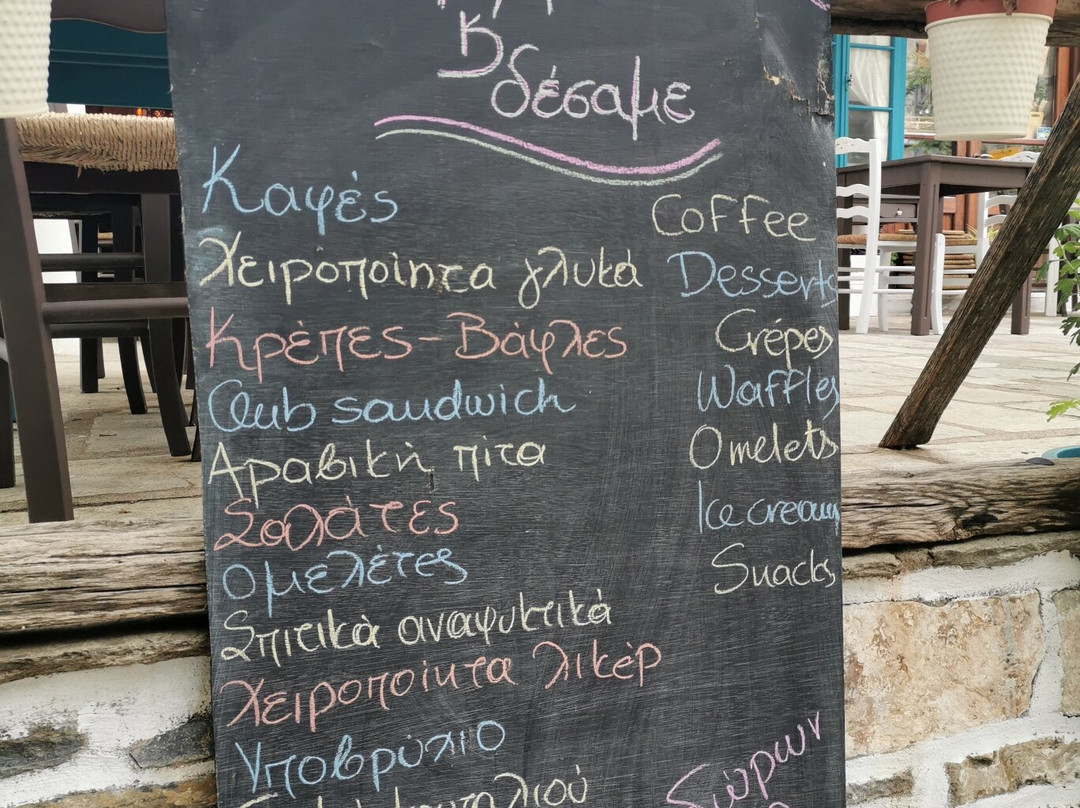 Κ
δέσαμε
Καφές
Χειροποίητα γλυκά
Κρέπες - Βάφλες
Club sandwich
Αραβική πίτα
Σαλάτες
Ομελέτες
Σπιτικά αναψυκτικά
Χειροποίητα λικέρ
Υποβρύχιο
Coffee
Desserts
Crépes
Waffles
Omelets
Ice cream
Snacks